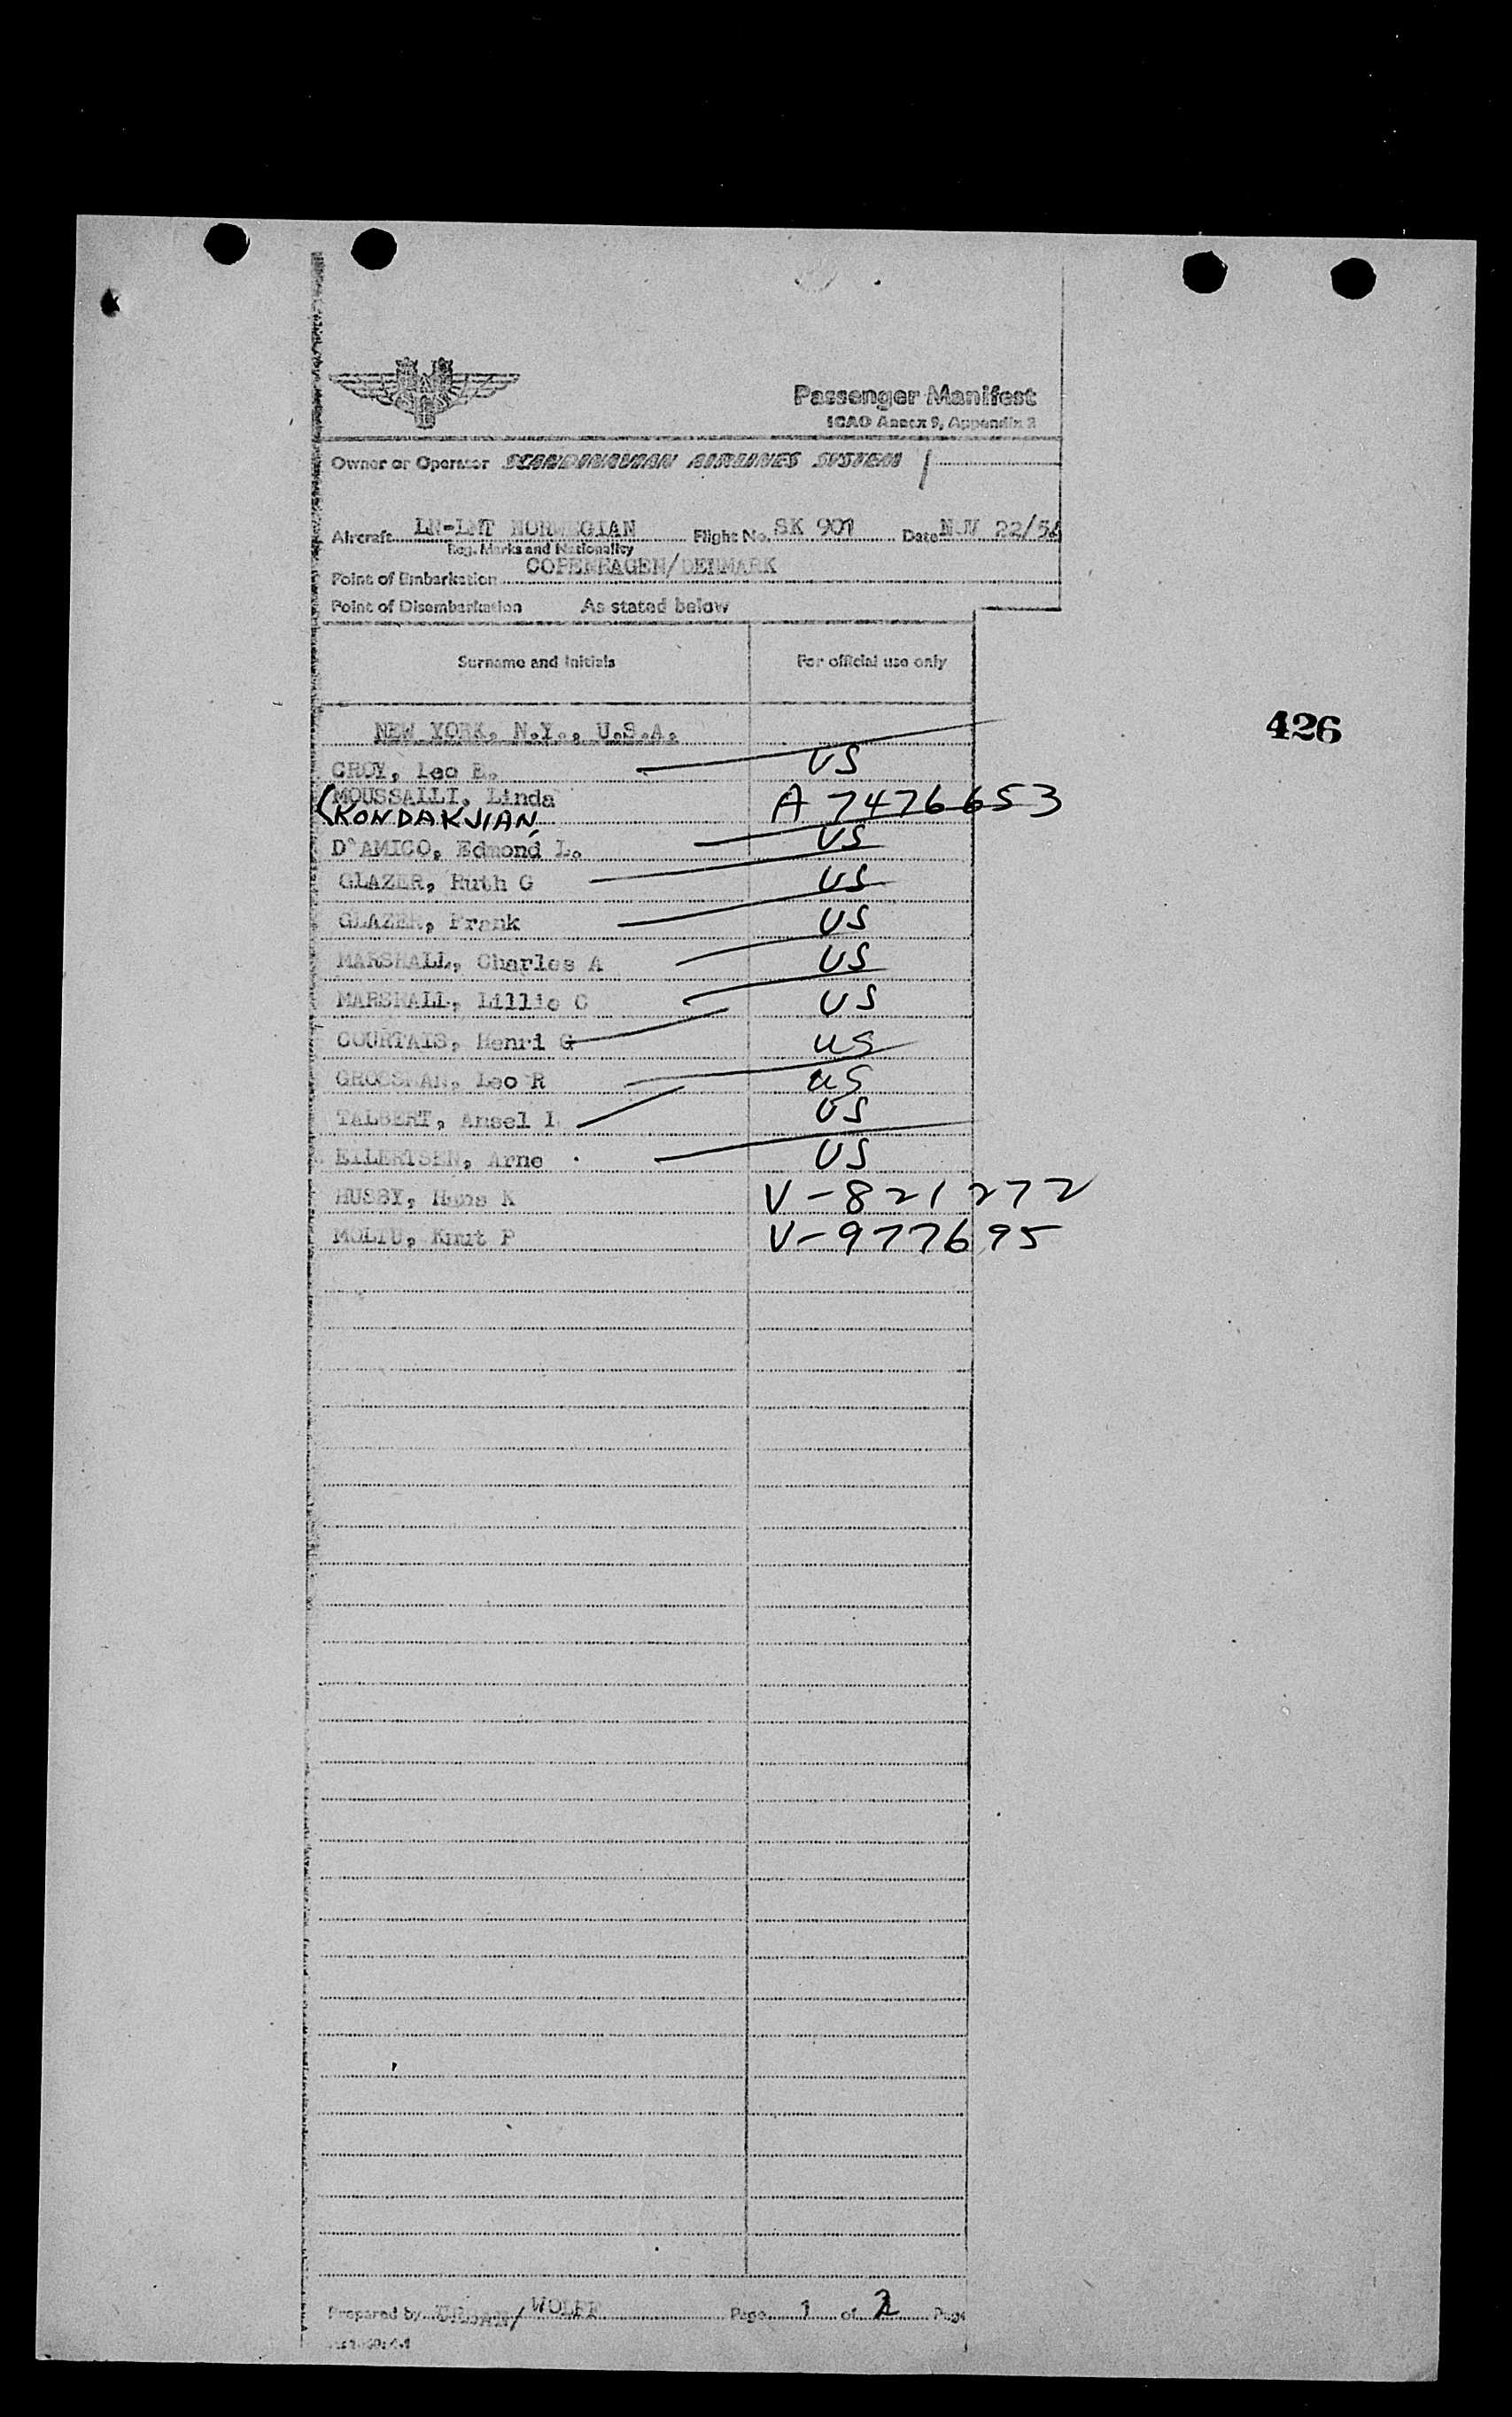 Passenger Manifest
ICAO Annex 9, Appendix 2
Owner or Operator SCANDINAVIAN AIRLINES SYSTEM
Aircraft LN-LMT NORWEGIAN Flight No. SK 901 Date NOV 22/54
Reg. Marks and Nationality
Point of Embarkation COPENHAGEN/DENMARK
Point of Disembarkation As stated below
Surname and Initials For official use only
NEW YORK, N.Y., U.S.A.
426
CROY, Leo E. US
MOUSSALLI, Linda A 7476653
(KONDAKJIAN,
D'AMICO, Edmond L. US
GLAZER, Ruth G US
GLAZER, Frank US
MARSHALL, Charles A US
MARSHALL, Lillie C US
COURTAIS, Henri G US
GROSSMAN, Leo R US
TALBERT, Ansel E US
EILERTSEN, Arne US
HUSBY, Hans K V-821272
MOLTU, Knut P V-977695
Prepared by URBAN/WOLFF Page 1 of 2 Page